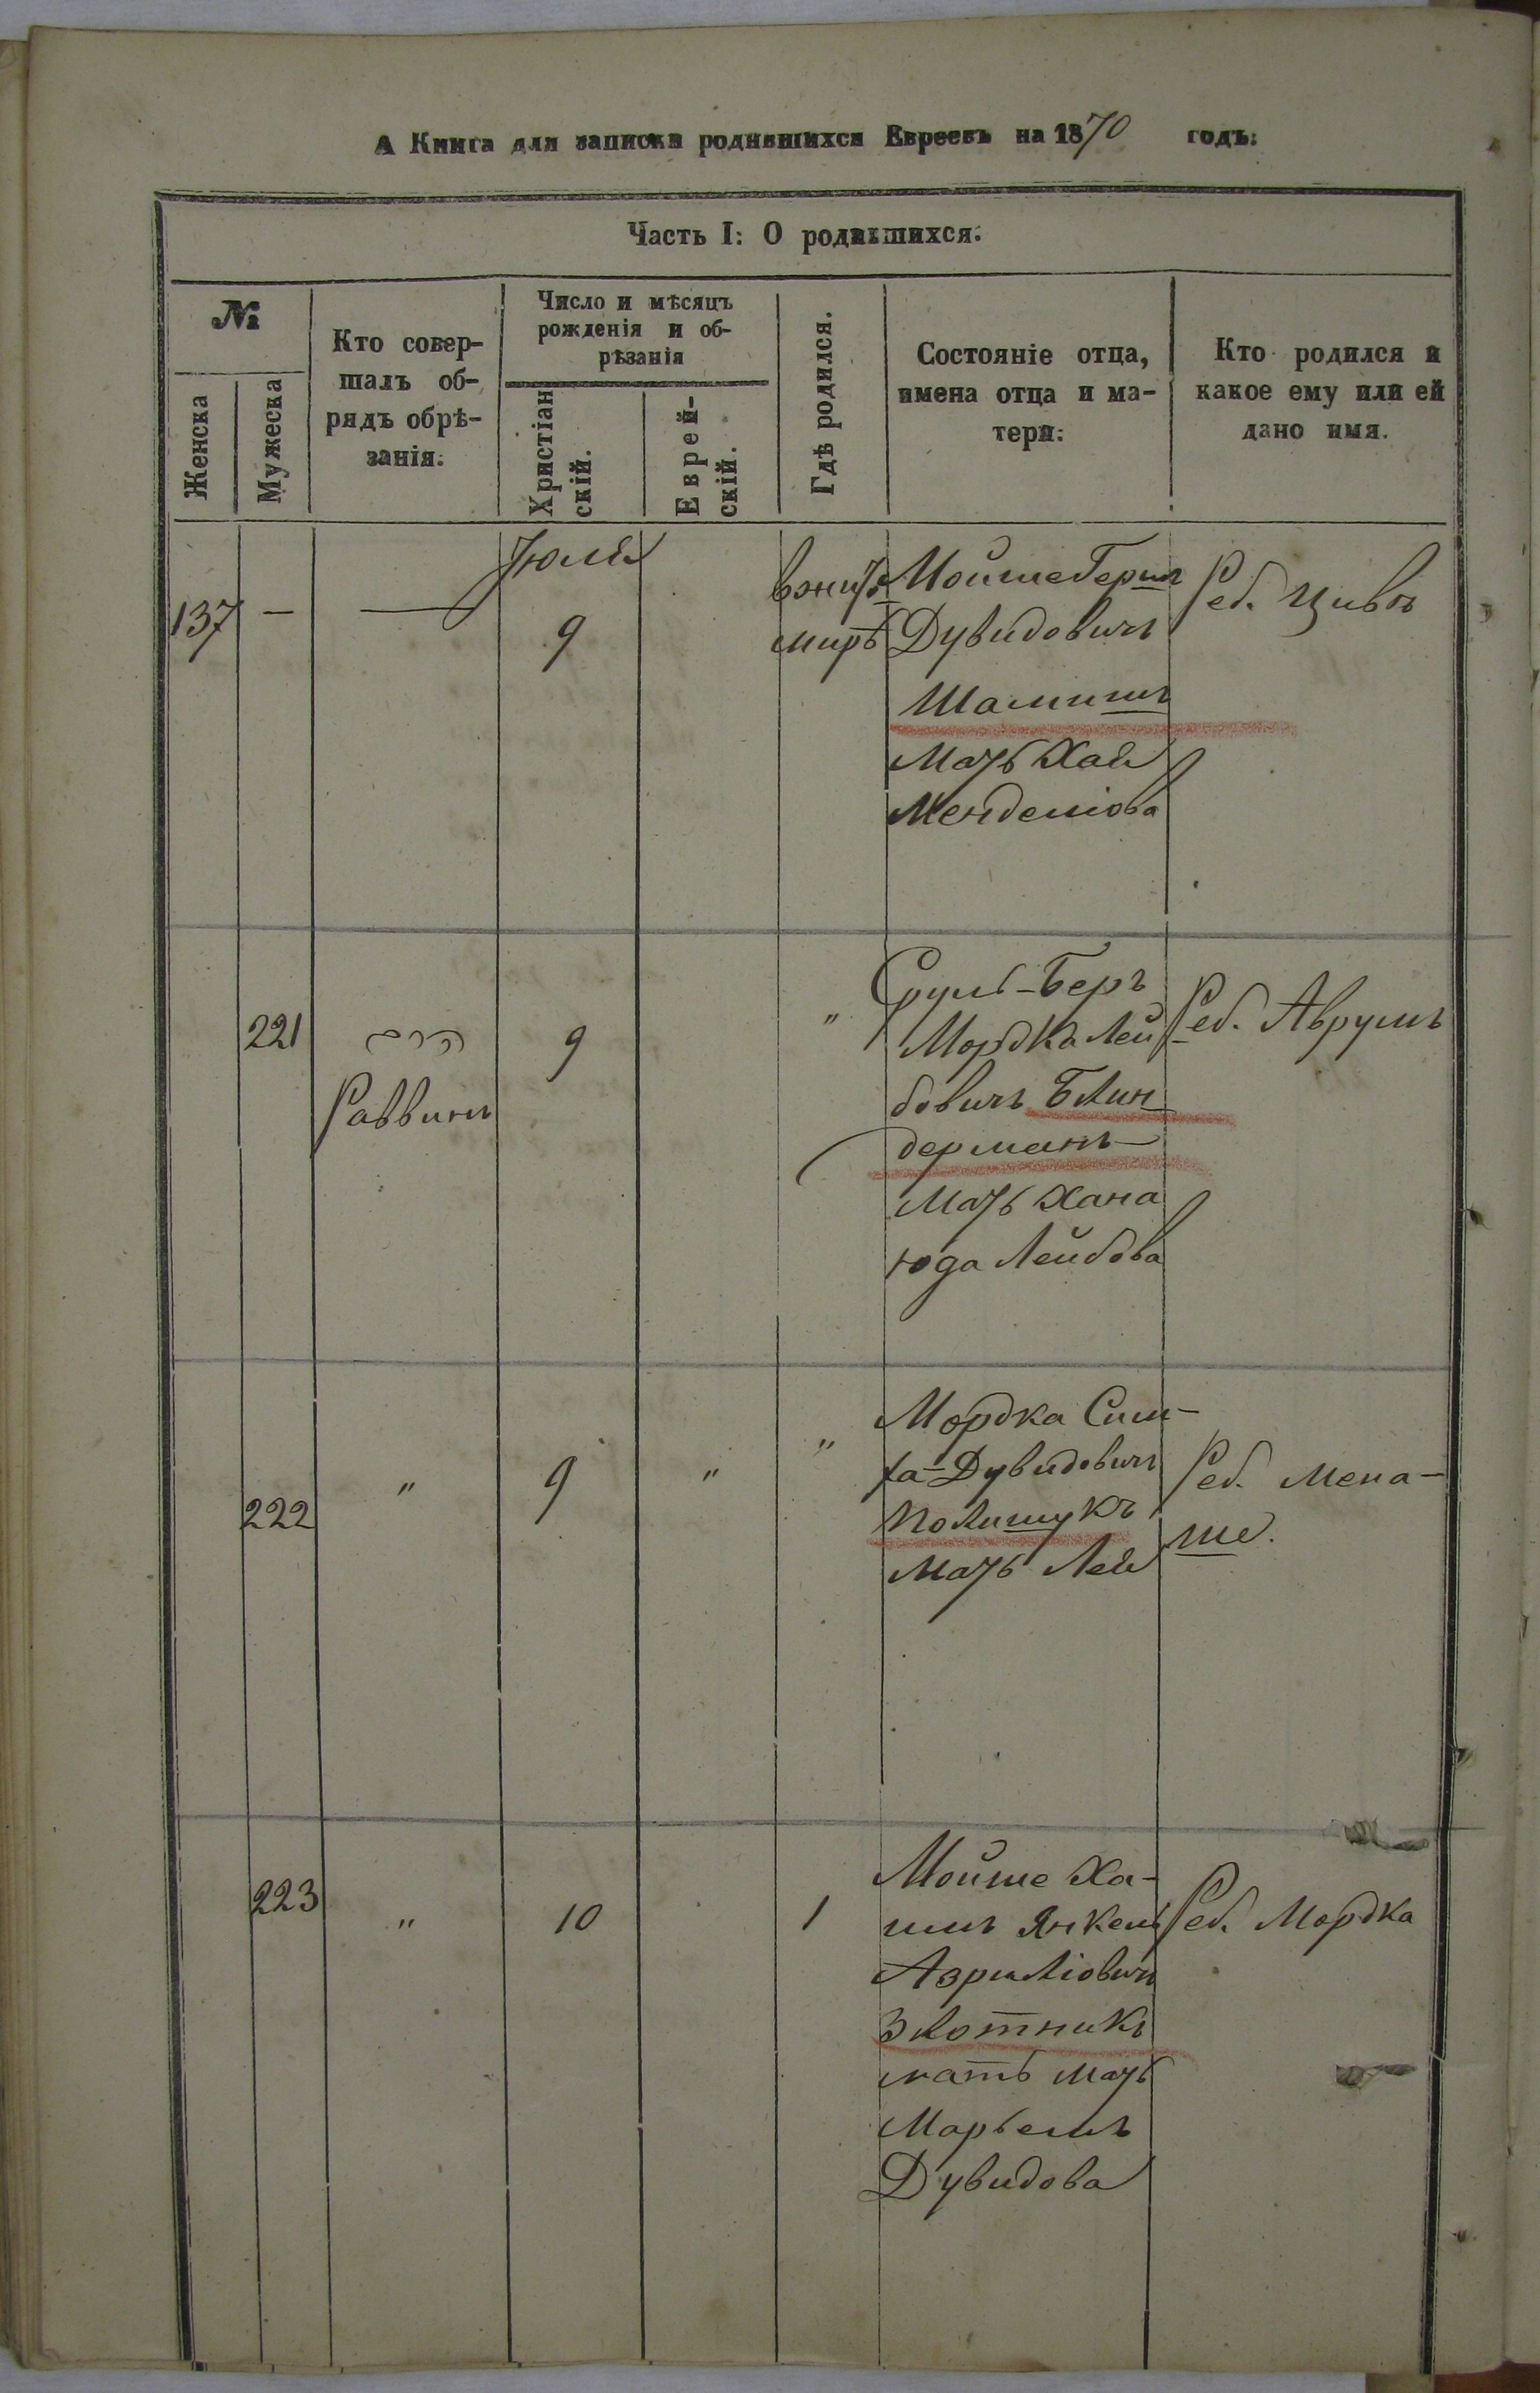 А Книга для записки родившихся Евреевъ на 1870 годъ:
Часть I: О родившихся:
№
Женска
Мужеска
Кто совер-
шалъ об-
рядъ обрѣ-
занія:
Число и мѣсяцъ
рожденія и об-
рѣзанія
Христіан
скій.
Еврей-
скій.
Гдѣ родился.
Состояніе отца,
имена отца и ма-
тери:
Кто родился и
какое ему или ей
дано имя.
Іюля
137 — — 9
вжито
мирѣ
Мойше Герш
Дувидовичъ
Шамишъ
Мать Хая
Менделіова
Реб. Цивъ
221
Раввинъ
9
"
Сруль-Беръ
Мордка Лей
бовичъ Блин
дерманъ
Мать Хана
юда Лейбова
Реб. Аврумъ
222 " 9 " "
Мордка Сим-
ха-Дувидовичъ
Полишукъ
Мать Лея
Реб. Мена-
ше.
223 " 10 1
Мойше Ха-
имъ Янкель
Азриліовичъ
Злотникъ
мать Мать
Марьемъ
Дувидова
Реб. Мордка